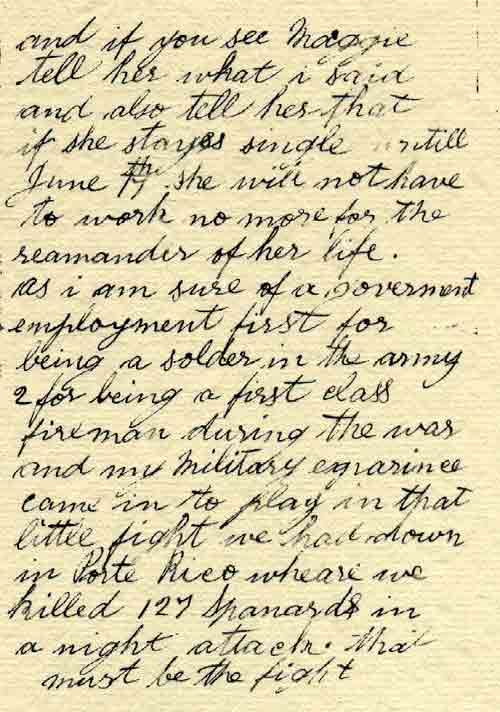 and if you see Maggie
tell her what i said
and also tell her that
if she stayes single untill
June 17th she will not have
to work no more for the
reamander of her life.
as i am sure of a goverment
employment first for
being a solder in the army
2 for being a first class
fireman during the war
and my Military exparince
came in to play in that
little fight we had down
in Porte Rico wheare we
killed 127 Spanards in
a night attack. that
must be the fight